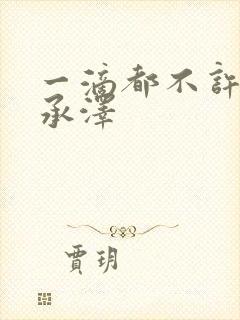 一滴都不許
承澤
賈玥